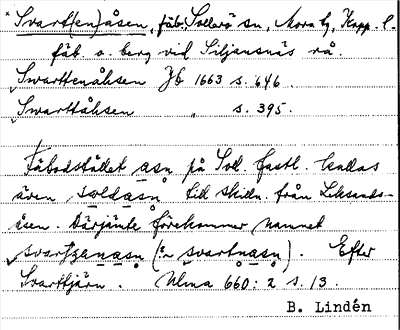 *Svart(en)åsen, fäb. Sollerö sn, Mora tg, Kopp. l.
fäb o. berg vid Siljansnäs rå.
Swarttenåhsen Jb 1663 s. 646.
Swarttåhsen " s. 395.
Fäbodstället asn på Soll. fastl. kallas
även soldasn till skilln. från Leksands-
åsen. Därjämte förekommer namnet
svartjanasn (:a svartnasn). Efter
Svarttjärn. Ulma 660:2 s. 13.
B. Lindén